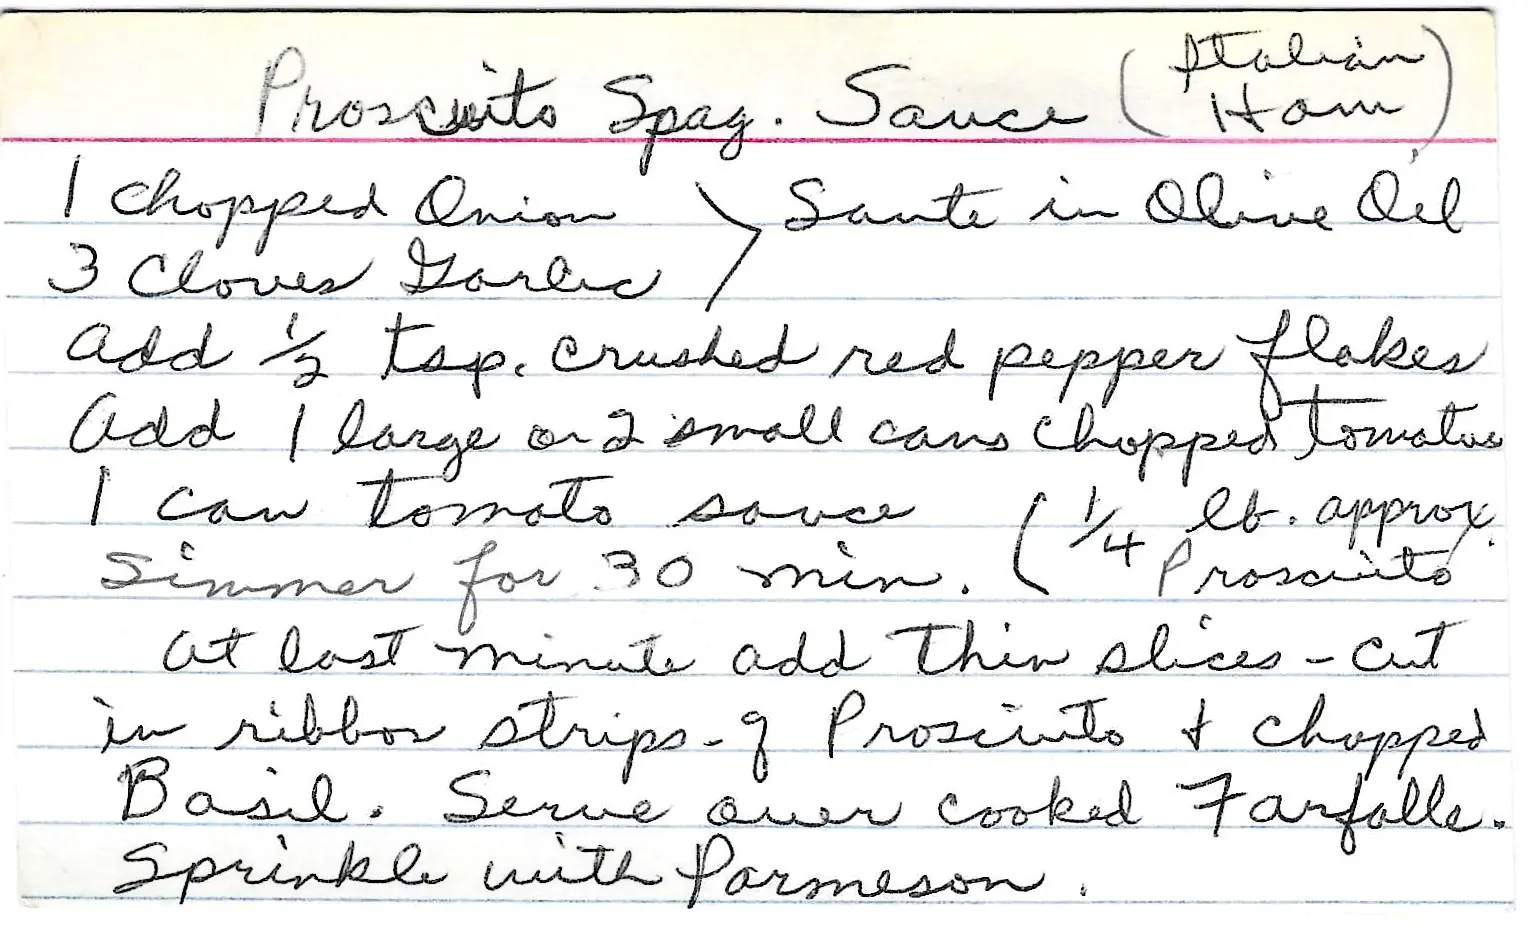 Prosciuto Spag. Sauce (Italian Ham)
1 Chopped Onion > Saute in Olive Oil
3 Cloves Garlic
Add 1/2 tsp. crushed red pepper flakes
Add 1 large or 2 small cans chopped tomatoes
1 can tomato sauce (1/4 lb. approx.
Simmer for 30 min. (Prosciuto
At last minute add thin slices - cut
in ribbon strips - of Prosciuto & chopped
Basil. Serve over cooked Farfalle.
Sprinkle with Parmeson.